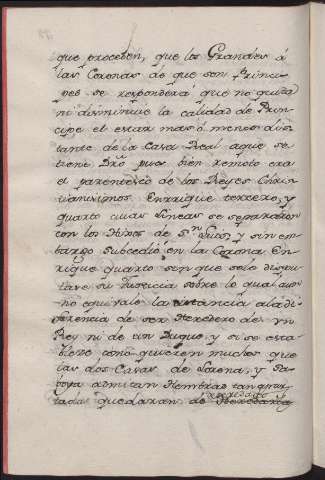 que proceden, que los Grandes à
las Coronas de que son Princi-
pes se responderá que no quita
ni disminuie la calidad de Prin-
cipe el estar mas ó menos dis-
tante de la Casa Real aque se
tiene Dro pues bien remoto era
el parentesco de los Reyes Chris-
tianisimos Enrrique tercero, y
quarto cuias Lineas se separaron
con los Hijos de Sn Luis, y sin em-
bargo subcedió en la Corona En-
rique quarto sin que se le dispu-
tase su Justicia sobre lo qual aun
no equivale la distancia ala di-
ferencia de ser Heredero de vn
Rey ni de un Duque, y si se esta-
blece como quieren muchos que
las dos Casas de Lorena, y Sa-
boya admitan Hembras tan
tadas quedaran de